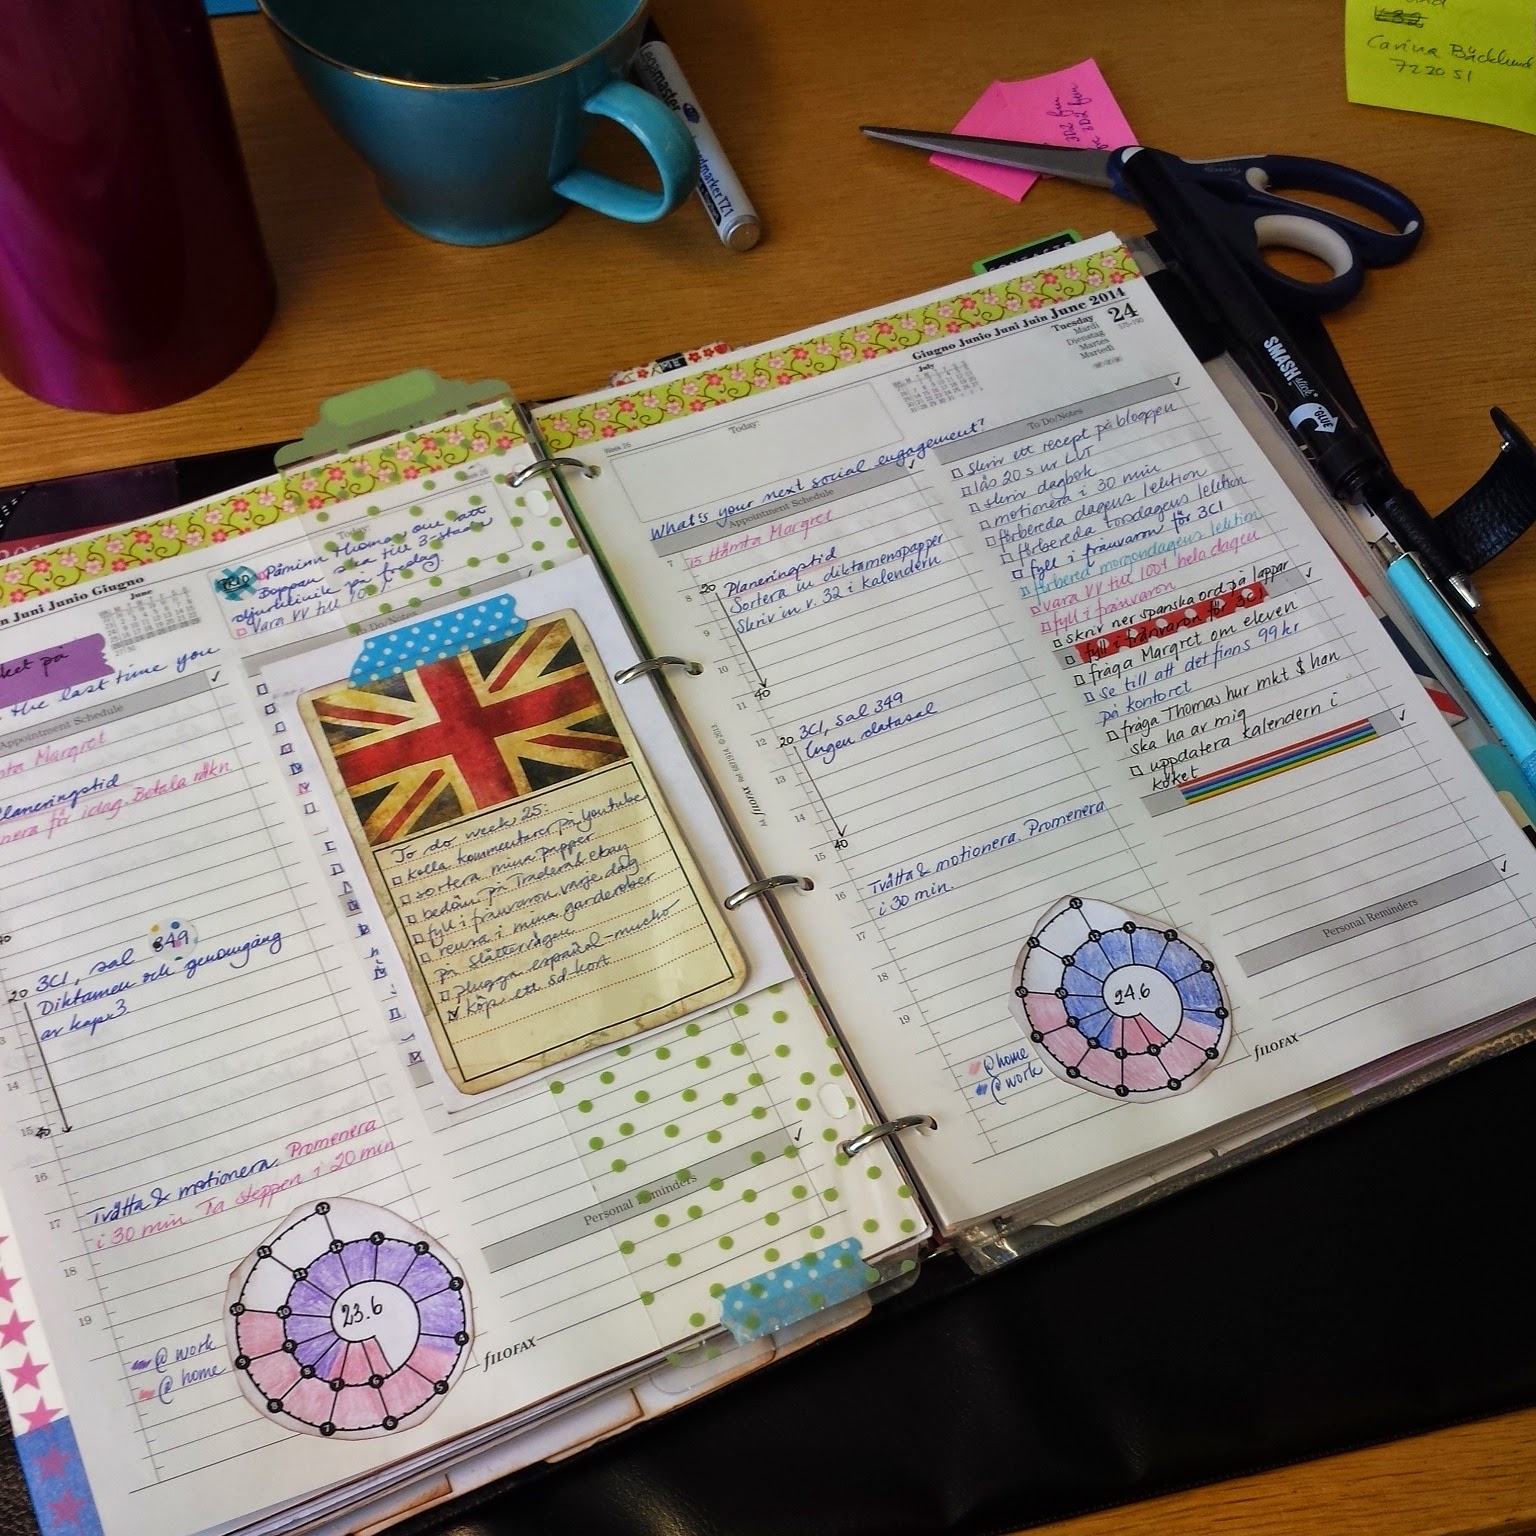 Carina Bäcklund
722051
Legamaster
TZ1
SMASH stick
GLUE
CONTACTS
Juni Junio Giugno
June
Today:
Påminn Thomas om att
Boppan ska till 3-stads
djurklinik på fredag.
vara VV till 100%
To Do/Notes
the last time you
Appointment Schedule
Margret
Planeringstid
idag. Betala räkn.
349
20 3C1, sal
Diktamen och genomgång
av kap. 3
14
15
40
16
Tvätta & motionera. Promenera
17
i 30 min. Ta steppen i 20 min
18
19
@ work
@ home
23.6
FILOFAX
To do week 25:
kolla kommentarer på Youtube
sortera mina papper
bedöm på Tradera & ebay
fyll i frånvaron varje dag
rensa i mina garderober
på Slåttervägen
plugga español-mucho
köp ett sd.kort
Personal Reminders
Giugno Junio Juni Juin June 2014
Tuesday 24
Mardi
Dienstag
Martes
Martedì
July
Week 26
Today:
What's your next social engagement?
Appointment Schedule
7 15 Hämta Margret
20 Planeringstid
8 Sortera in diktamenspapper
Skriv in v. 32 i kalendern
9
10
40
11
12 20 3C1, sal 349
Ingen datasal
13
14
15 40
16 Tvätta & motionera. Promenera
i 30 min.
17
18
19
@home
@work
24.6
FILOFAX
To Do/Notes
skriv ett recept på bloggen
läs 20 s ur LVT
skriv dagbok
motionera i 30 min
förbereda dagens lektion
förbereda torsdagens lektion
fyll i frånvaron för 3C1
förbered morgondagens lektion
vara VV till 100% hela dagen
fyll i frånvaron
skriv ner spanska ord på lappar
fyll i frånvaron för 3C1
fråga Margret om eleven
se till att det finns 99 kr
på kontoret
fråga Thomas hur mkt $ han
ska ha av mig
uppdatera kalendern i
köket
Personal Reminders